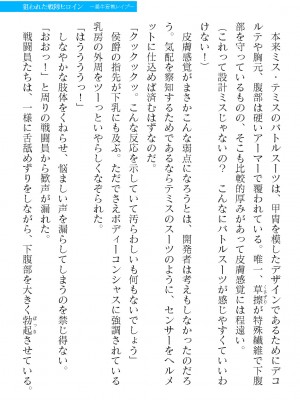 狙われた戦闘ヒロイン
本来ミス・テミスのバトルスーツは、甲冑を模したデザインであるためにデコ
ルテや胸元、腹部は硬いアーマーで覆われている。唯一、草摺が特殊繊維で下腹
部を守っているものの、そこも比較的厚みがあって皮膚感覚には程遠い。
（これって設計ミスじゃないの？　こんなにバトルスーツが感じやすくていいわ
けない！）
皮膚感覚がまさかこんな弱点になろうとは、開発者は考えもしなかったのだろ
う。気配を察知するためであるならテミスのスーツのように、センサーをヘルメ
ットに仕込めば済むはずなのだ。
「クックックッ。こんな反応を示していて汚らわしいも何もないでしょう」
侯爵の指先が下乳にも及ぶ。ただでさえボディーコンシャスに強調されている
乳房の外周をツーっといやらしくなぞられた。
「はうううっ！」
しなやかな肢体をくねらせ、悩ましい声を漏らしてしまうのを禁じ得ない。
「おおっ！」と周りの戦闘員から歓声が漏れた。
戦闘員たちは、一様に舌舐めずりをしながら、下腹部を大きく勃起させている。